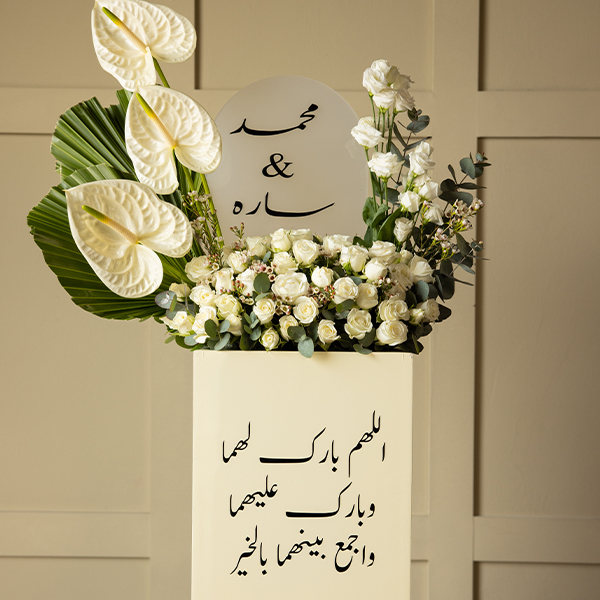 محمد
&
ساره
اللهم بارك لهما
وبارك عليهما
واجمع بينهما بالخير